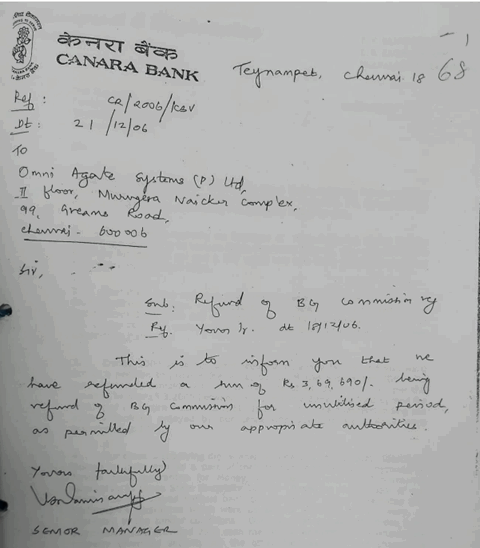 केनरा बैंक
CANARA BANK
- 1
Teynampet, Chennai. 18 68
Ref : CR/2006/KSV
Dt : 21/12/06
To
Omni Agate Systems (P) Ltd,
II floor, Murugesa Naicker Complex,
99, Greams Road,
Chennai - 600006
Sir,
Sub. Refund of BG Commission
Ref. Your lr. dt 18/12/06.
This is to inform you that we
have refunded a sum of Rs. 3,69,690/. being
refund of BG Commission for unutilised period,
as permitted by our appropriate authorities.
Yours faithfully
SENIOR MANAGER